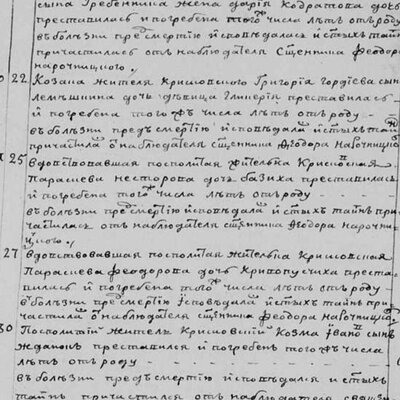 сына Гребенника жена Дарія Кодратова дочь
преставилась и погребена того числа лѣтъ отъ роду
въ болѣзни предъ смертію исповѣдалась и стыхъ таинъ
причастилась отъ наблюдателя Сщенника Феодора
нарочицкого
22 Козака жителя Крисковского Григорія Гордіева сына
Лемѣшина дочь дѣвица Гликерія преставилась
и погребена того жъ числа лѣтъ отъ роду
въ болѣзни предъ смертію исповѣдана и стыхъ таинъ
причастила о наблюдателя сщенника Феодора нарочицког
25 вдовствовавшая посполитая жителька
Параскева Несторова дочь Базиха преставилась
и погребена того числа лѣтъ отъ роду
въ болѣзни предъ смертію исповѣдана и стыхъ таинъ при
частилась отъ наблюдателя сщенника Феодора нарочи
цкого
27 вдовствовавшая посполитая жителька
Параскева Феодорова дочь Кривопусчиха преста
вилась и погребена того числа лѣтъ отъ роду
въ болѣзни предъ смертію исповѣдала и стыхъ таинъ при
частила о наблюдателя сщенника Феодора нарочицког
30 Посполитій житель Крисковскій Козма Іванов сынъ
Жданокъ преставился и погребенъ того жъ числа
лѣтъ отъ роду
въ болѣзни предъ смертію исповѣдался и стыхъ
таинъ причастился отъ наблюдателя священ